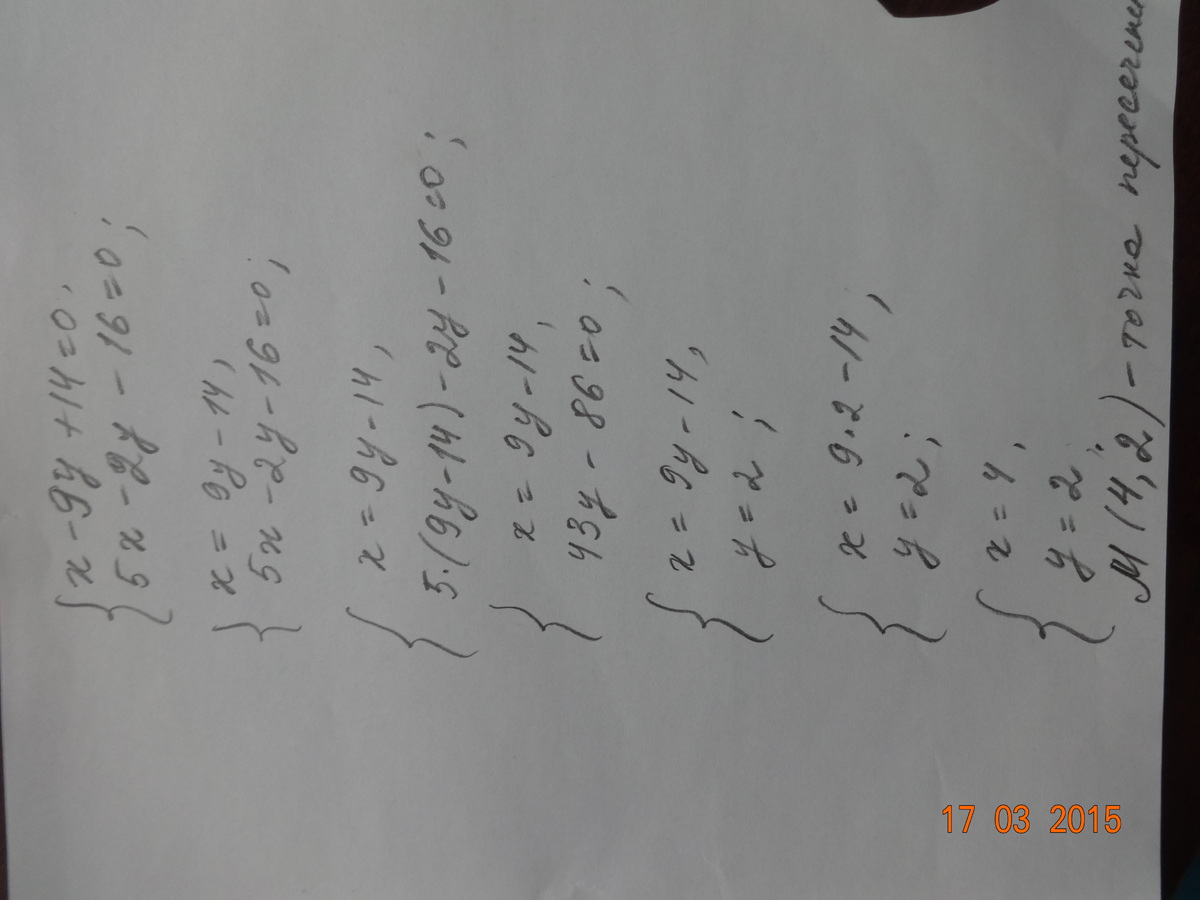 x - 9y + 14 = 0,
5x - 2y - 16 = 0;
x = 9y - 14,
5x - 2y - 16 = 0;
x = 9y - 14,
5·(9y - 14) - 2y - 16 = 0;
x = 9y - 14,
43y - 86 = 0;
x = 9y - 14,
y = 2;
x = 9·2 - 14,
y = 2;
x = 4,
y = 2;
M (4, 2) - точка
17 03 2015